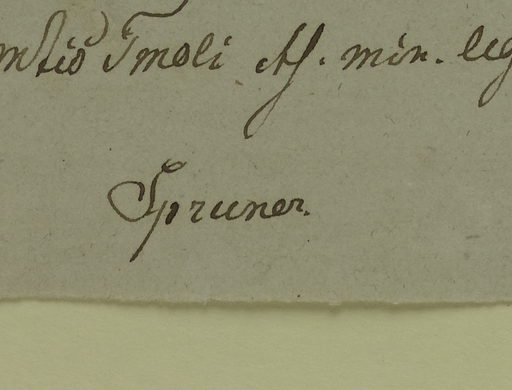 Tmoli As. min. leg
Spruner.